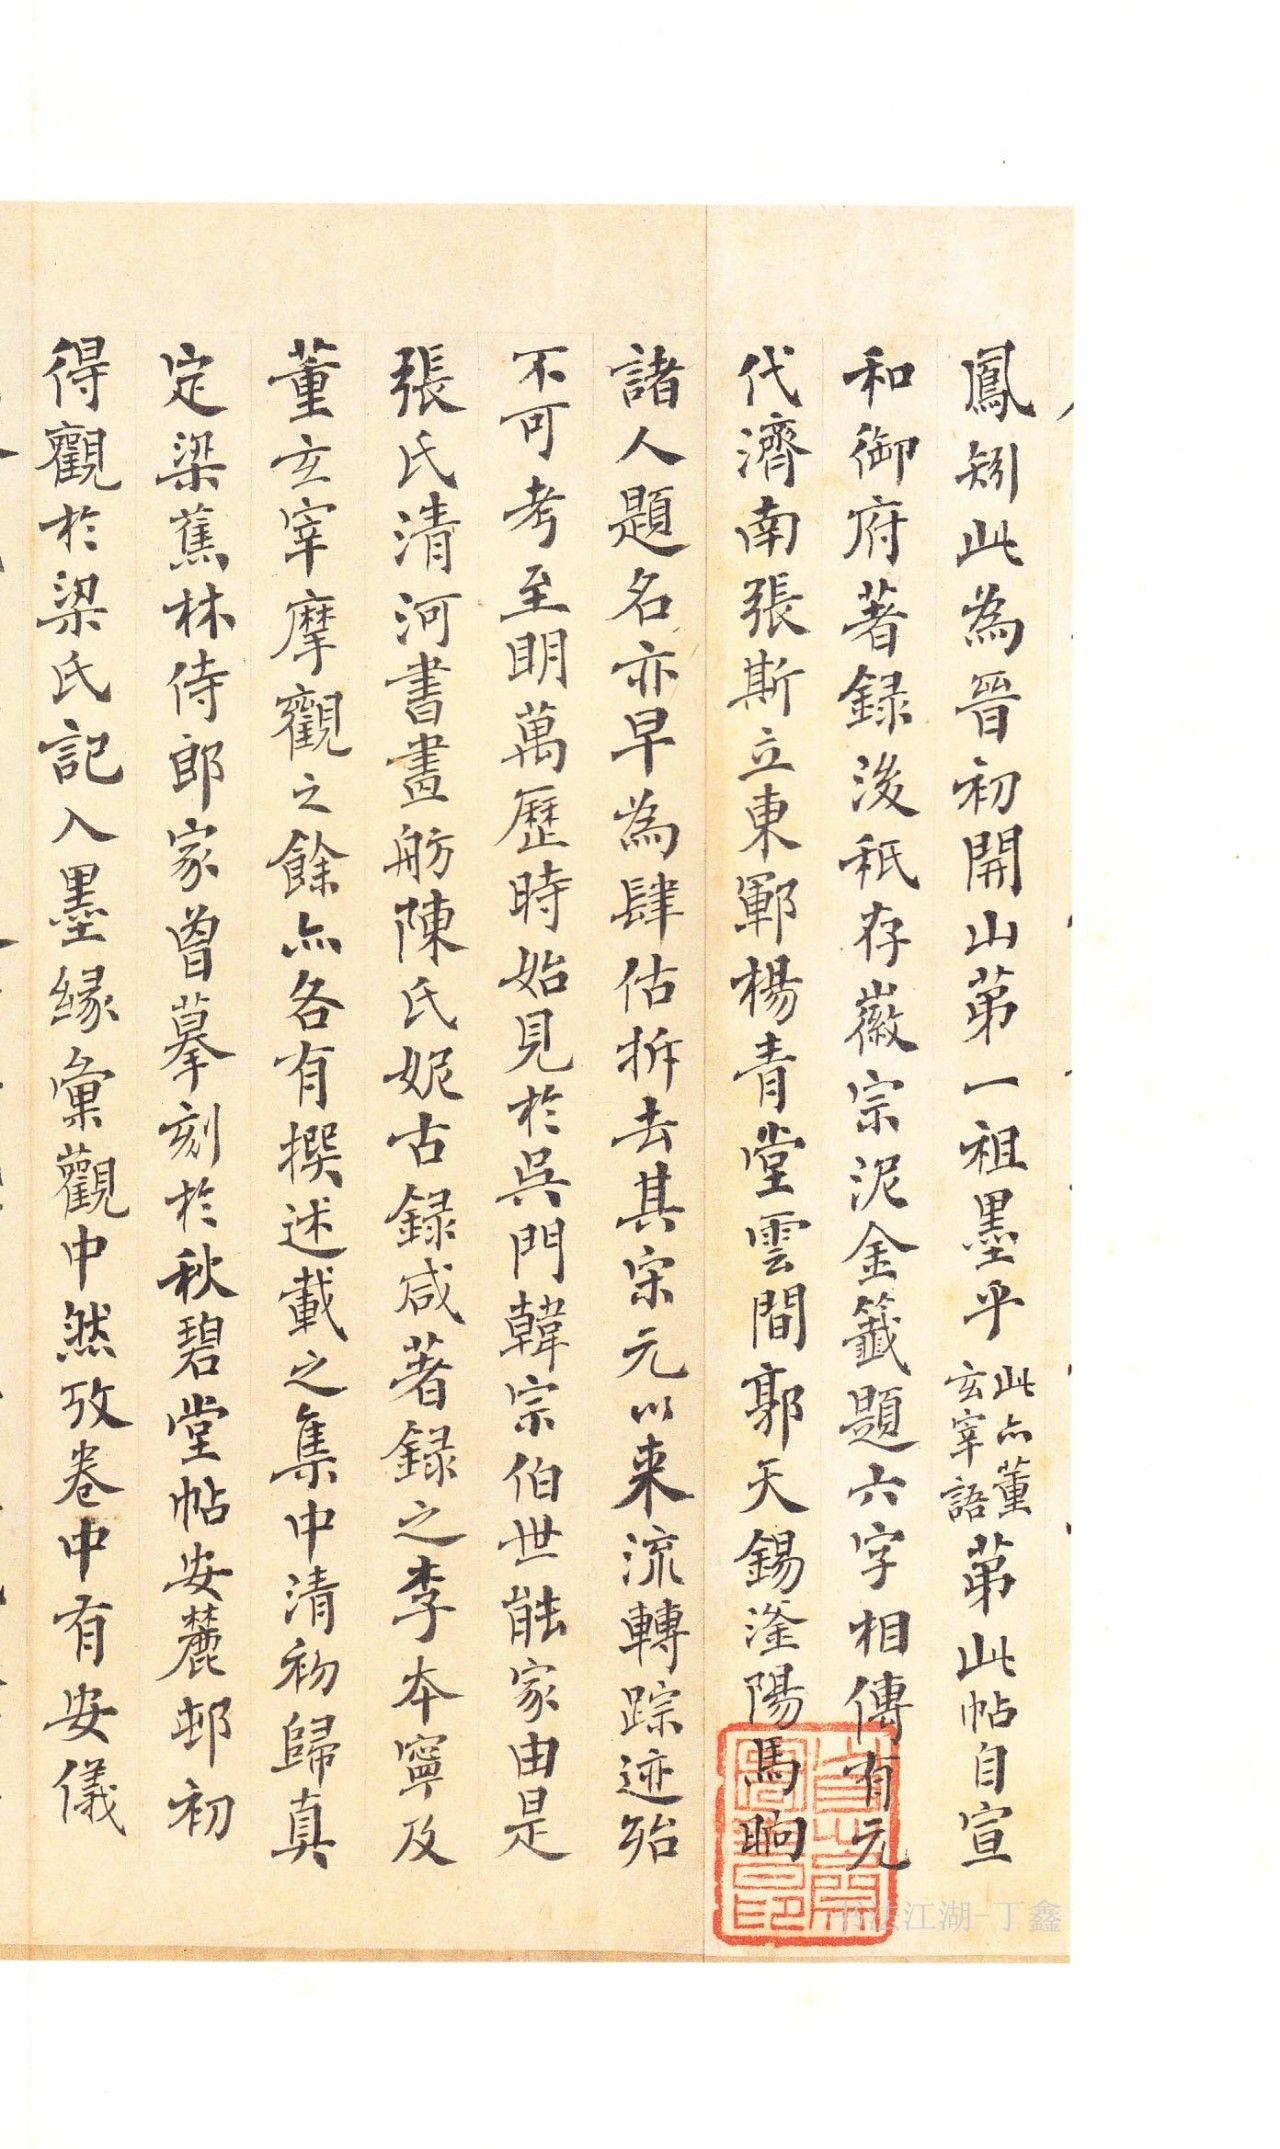 鳳矧此為晉初開山苐一祖墨乎
此亦董
玄宰語
苐此帖自宣
和御府著録後秖存徽宗泥金籤題六字相傳有元
代濟南張斯立東鄆楊青堂雲間郭天錫滏陽馬昫
諸人題名亦早為肆估拆去其宋元以来流轉踪迹殆
不可考至明萬歷時始見於吳門韓宗伯世能家由是
張氏清河書畫舫陳氏妮古録咸著録之李本寧及
董玄宰摩觀之餘亦各有撰述載之集中清初歸真
定梁蕉林侍郎家曾摹刻於秋碧堂帖安麓邨初
得觀於梁氏記入墨緣彙觀中然攷卷中有安儀
江湖-丁鑫